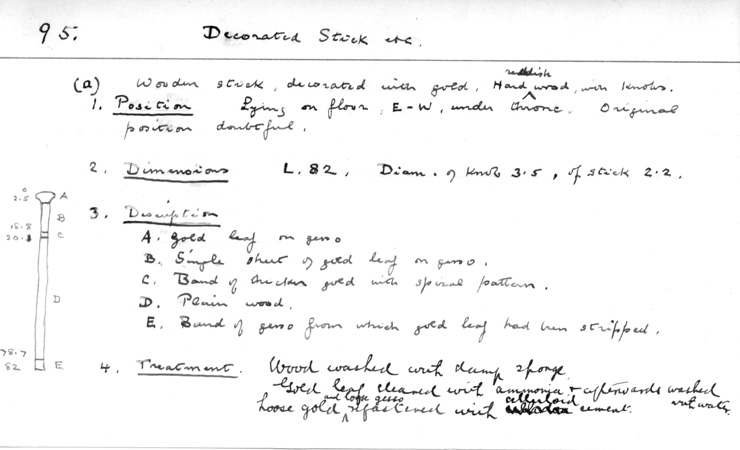 95. Decorated Stick etc.
(a) Wooden stick, decorated with gold, Hard reddish wood, with knobs.
1. Position Lying on floor, E-W, under throne. Original
position doubtful.
2. Dimensions L. 82, Diam. of knob 3.5, of stick 2.2.
3. Description
A. Gold leaf on gesso
B. Single sheet of gold leaf on gesso.
C. Band of thicker gold with spiral pattern.
D. Plain wood.
E. Band of gesso from which gold leaf had been stripped.
0
2.5 A
B
18.8
20.1 C
D
78.7
82 E
4. Treatment. Wood washed with damp sponge.
Gold leaf cleaned with ammonia & afterwards washed
with water.
Loose gold and loose gesso refastened with celluloid cement.